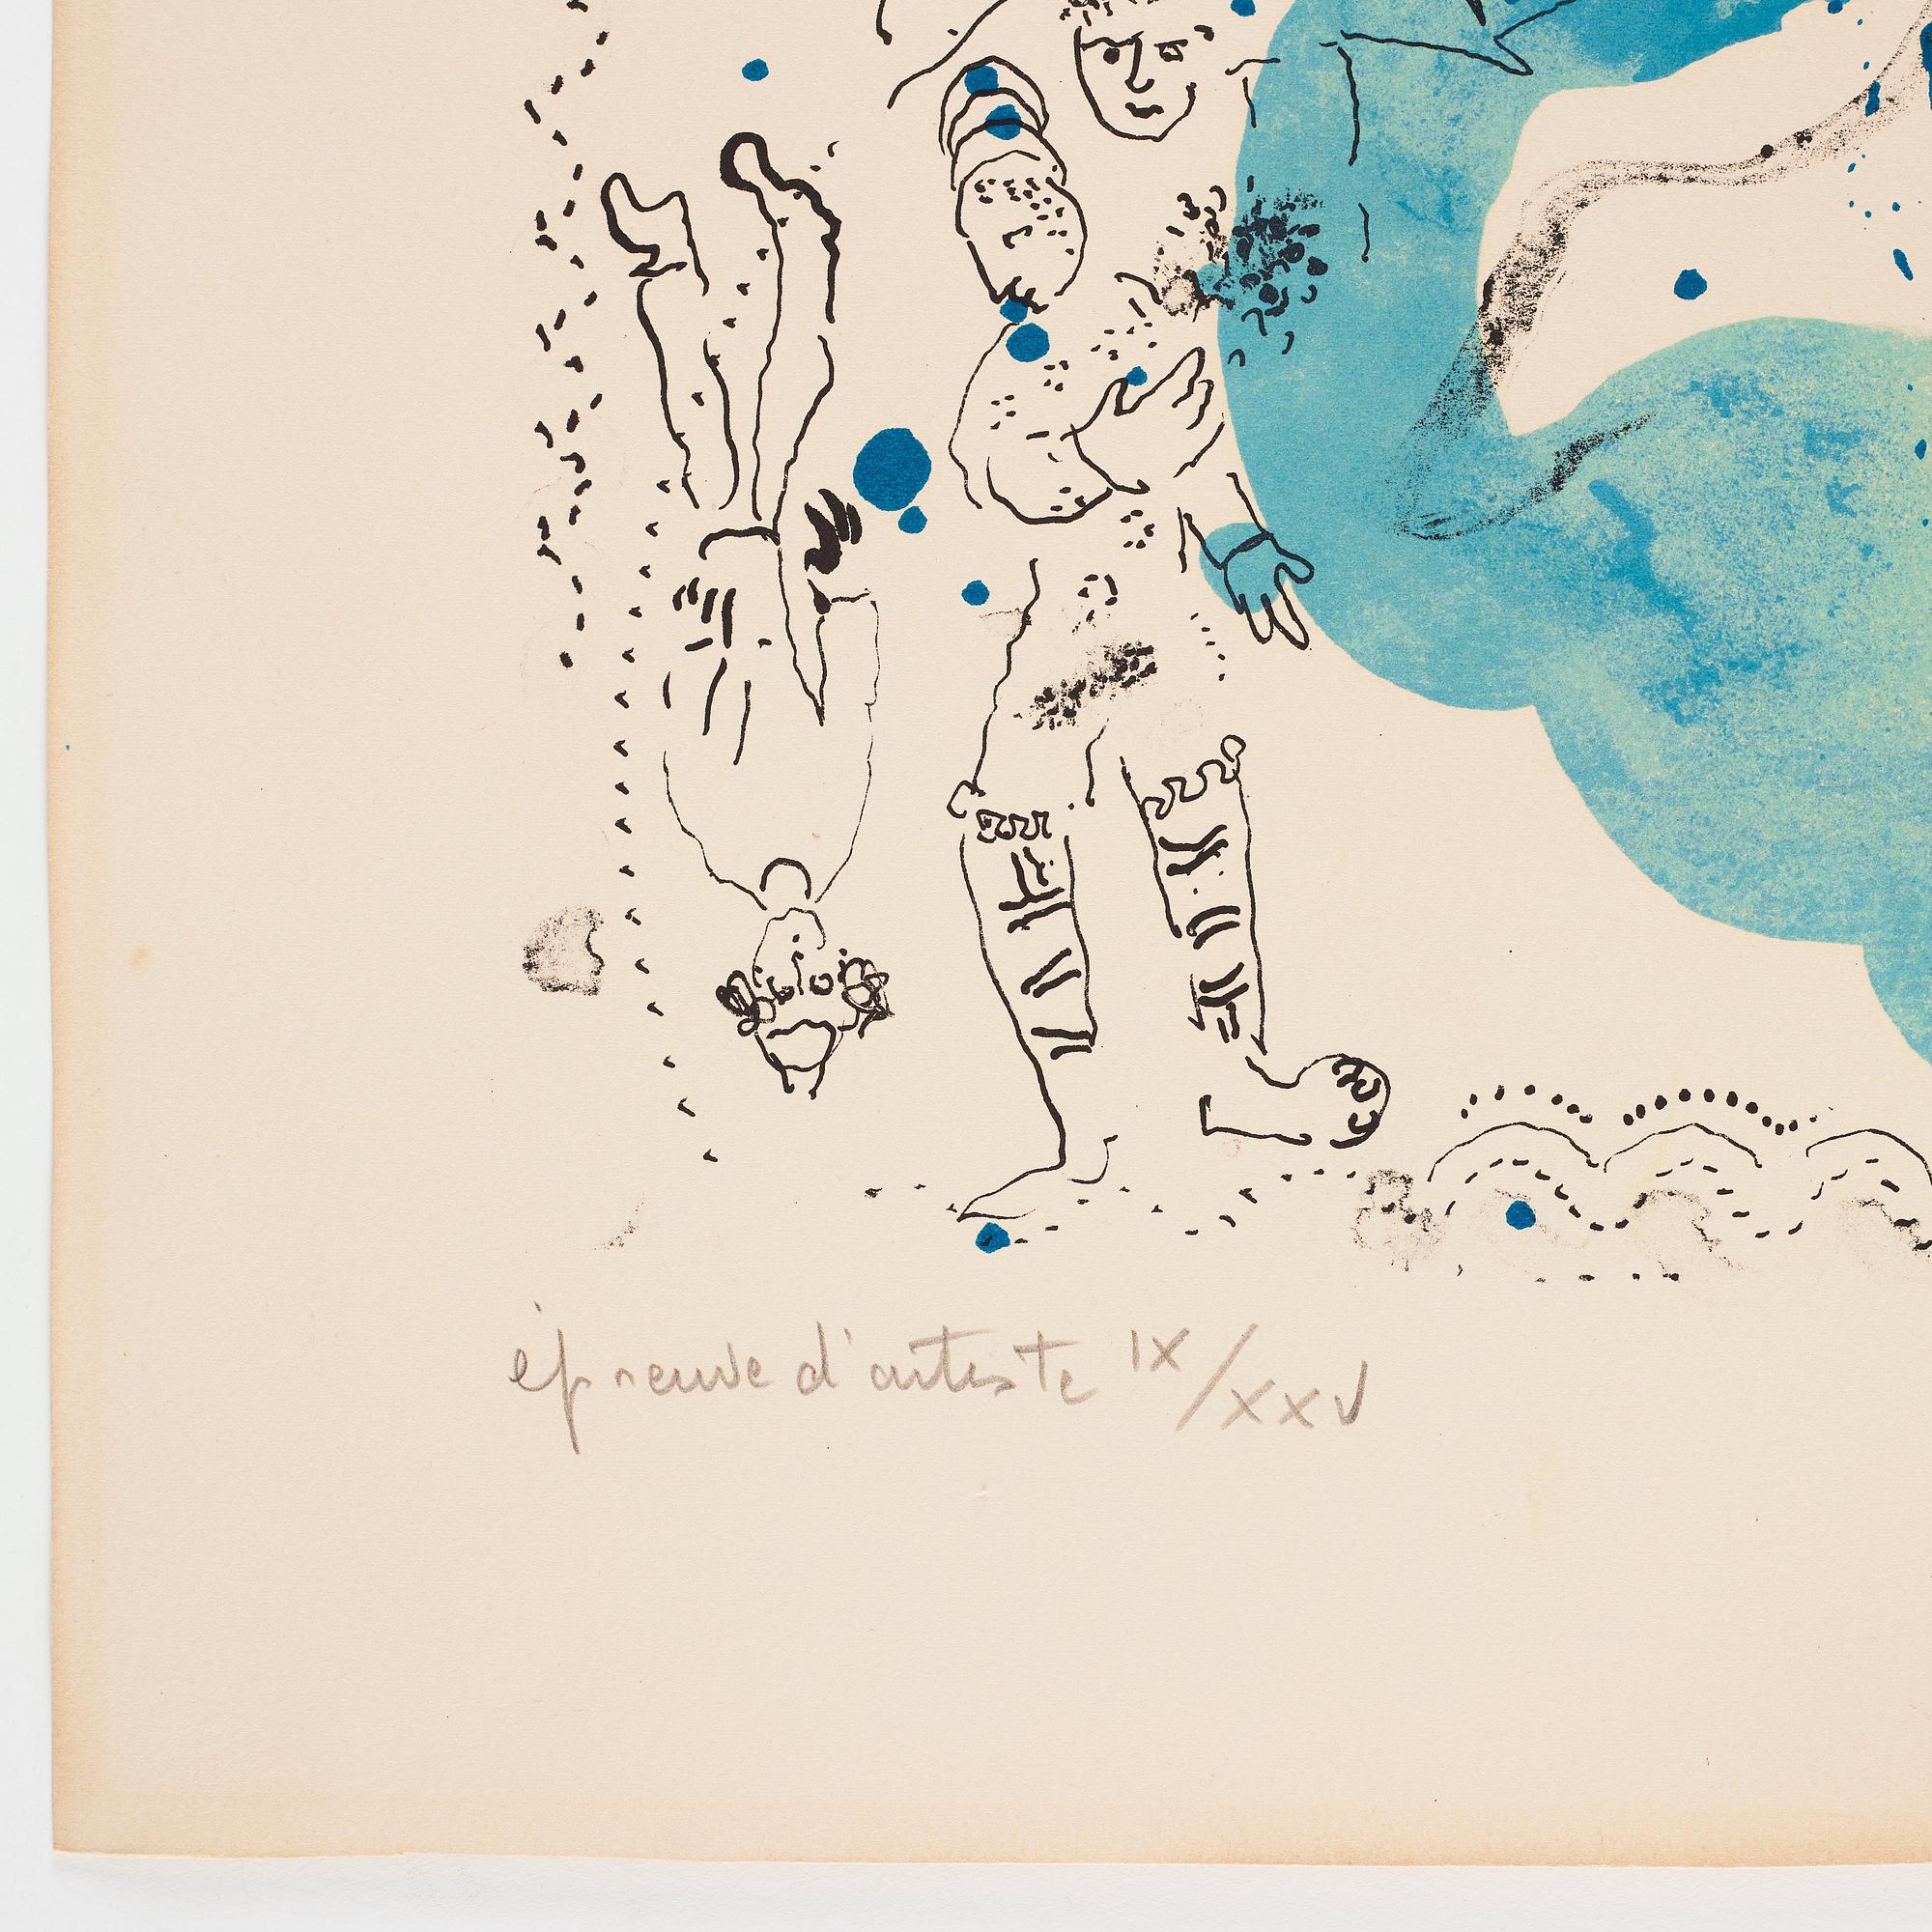 épreuve d'artiste IX/XXV